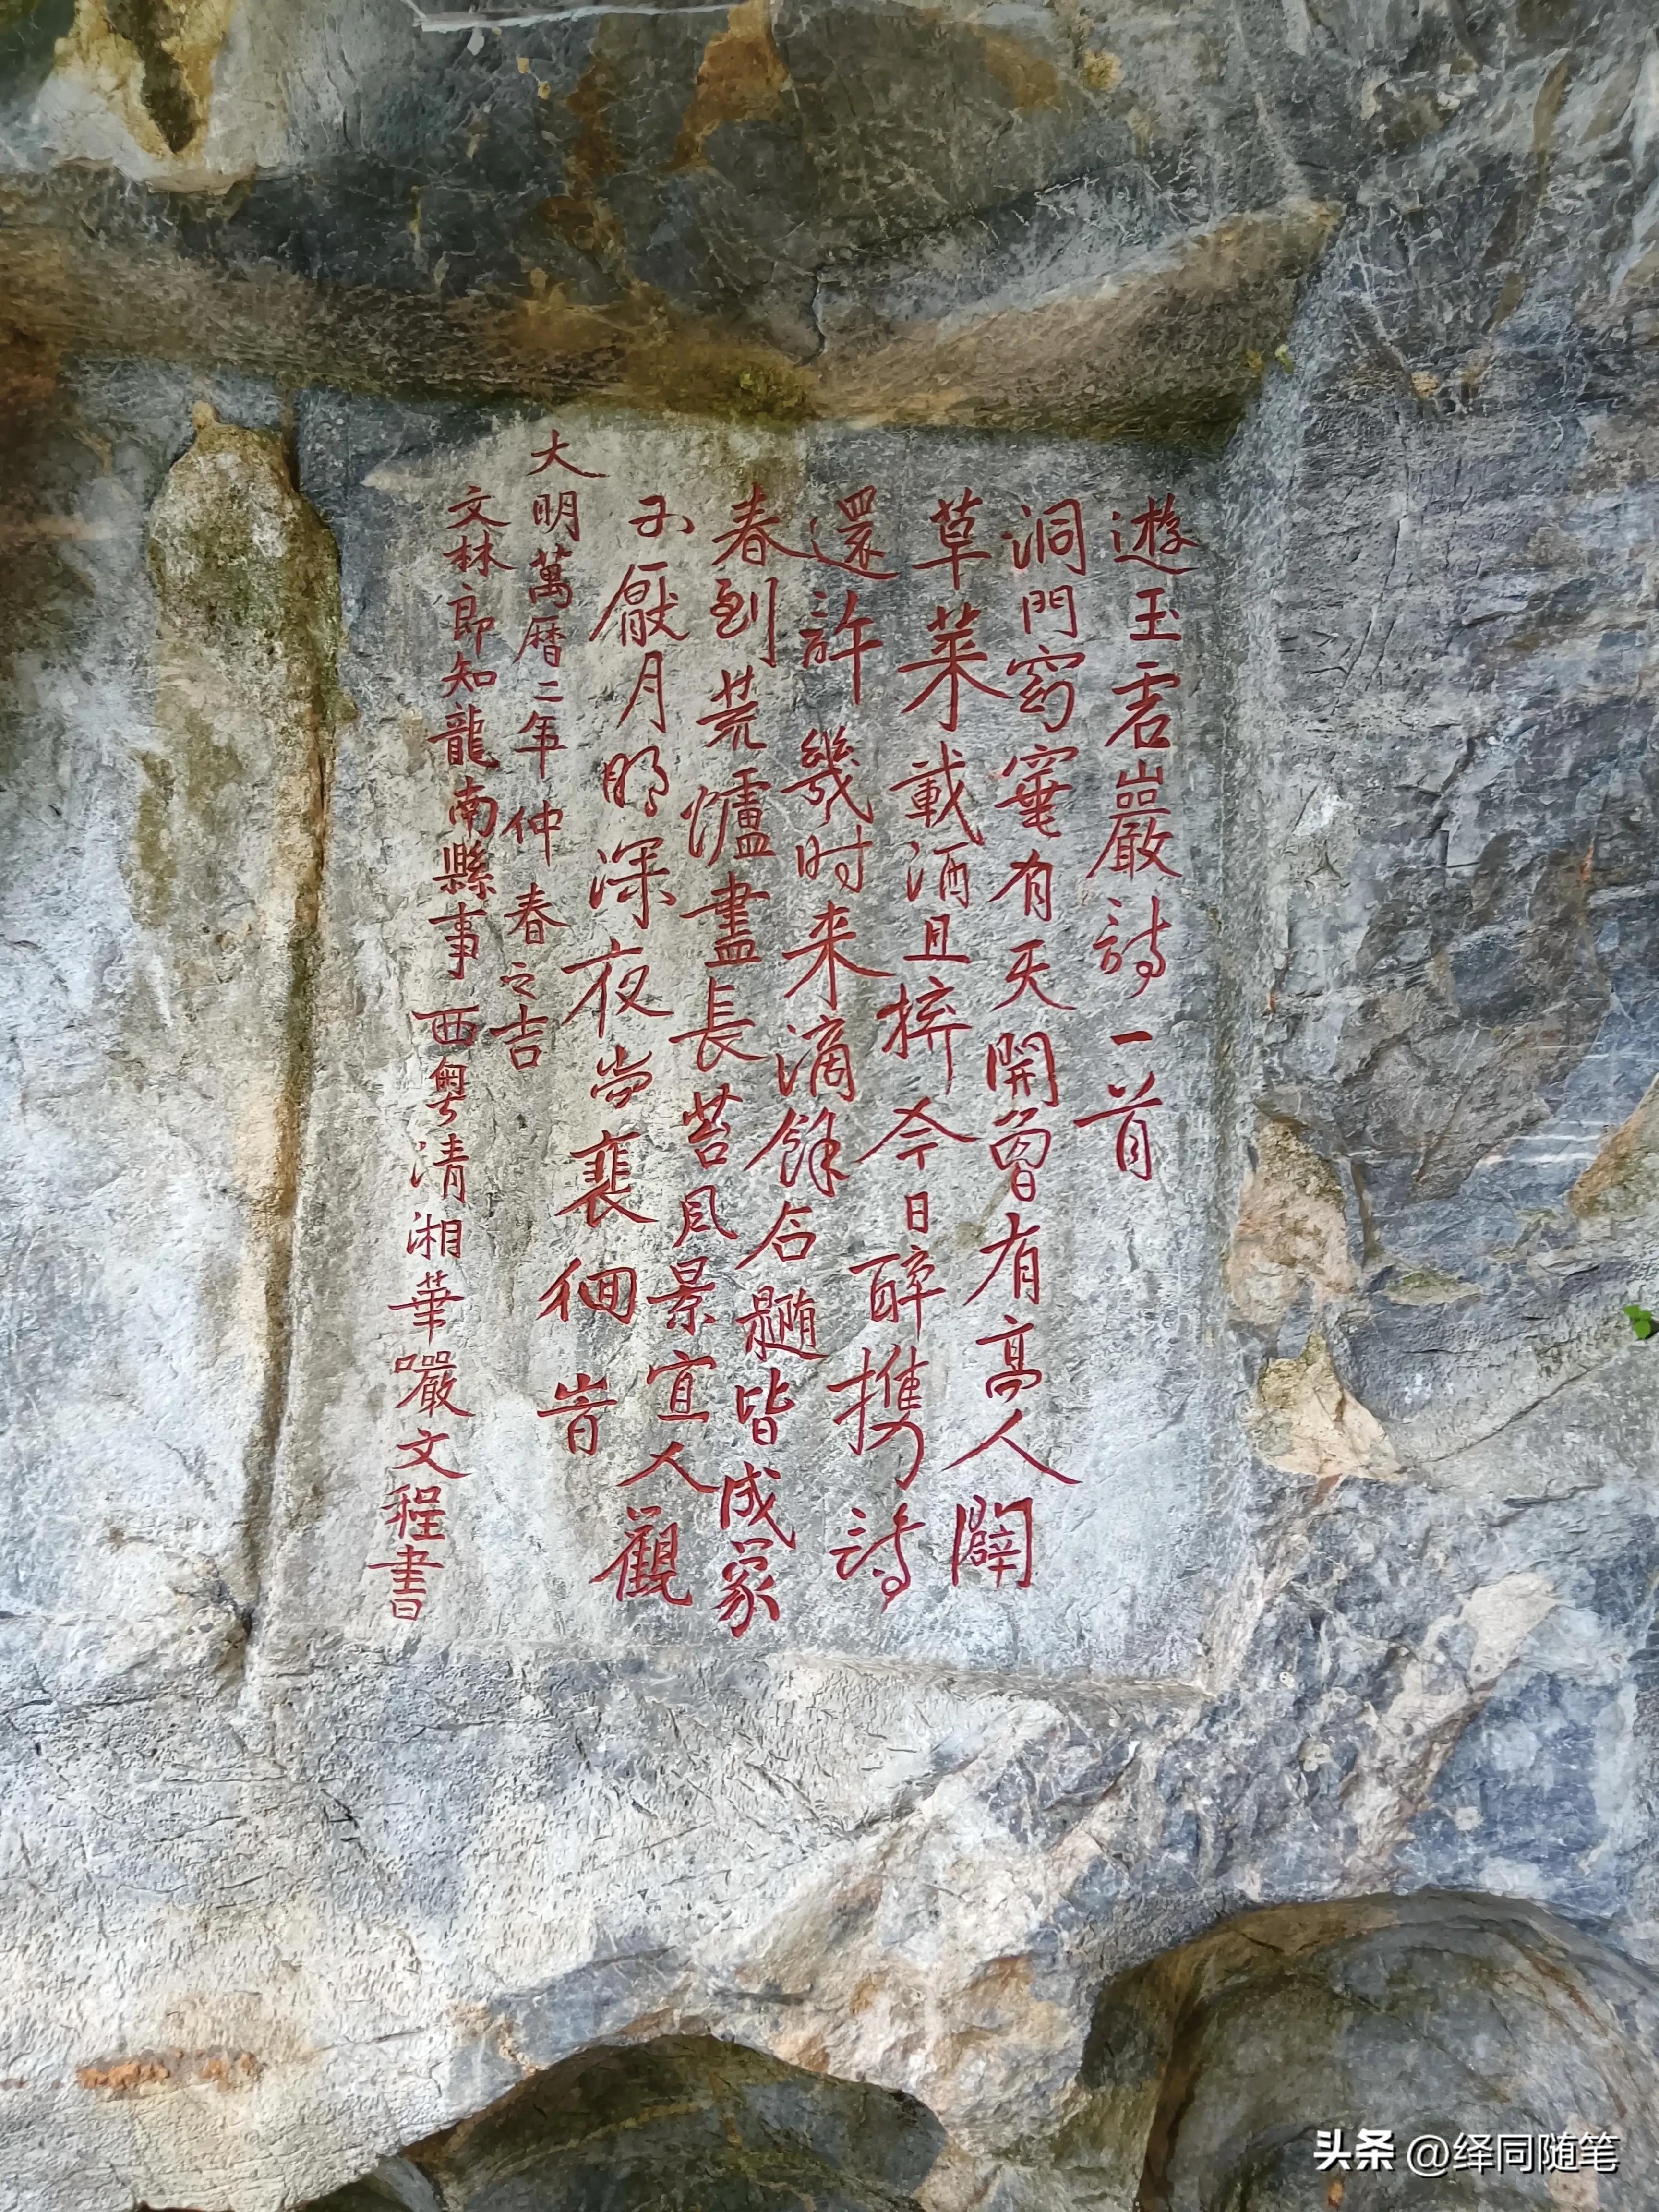 遊玉石巖詩一首
洞門窈有天開曾有高人闢
草萊載酒且拚今日醉携詩
還許幾时来滴餘石髓皆成象
春到荒爐盡長苔風景宜人觀
不厭月明深夜尚裵徊旹
大明萬曆二年仲春之吉
文林郎知龍南縣事西粤清湘華巖文程書
头条 @绎同随笔